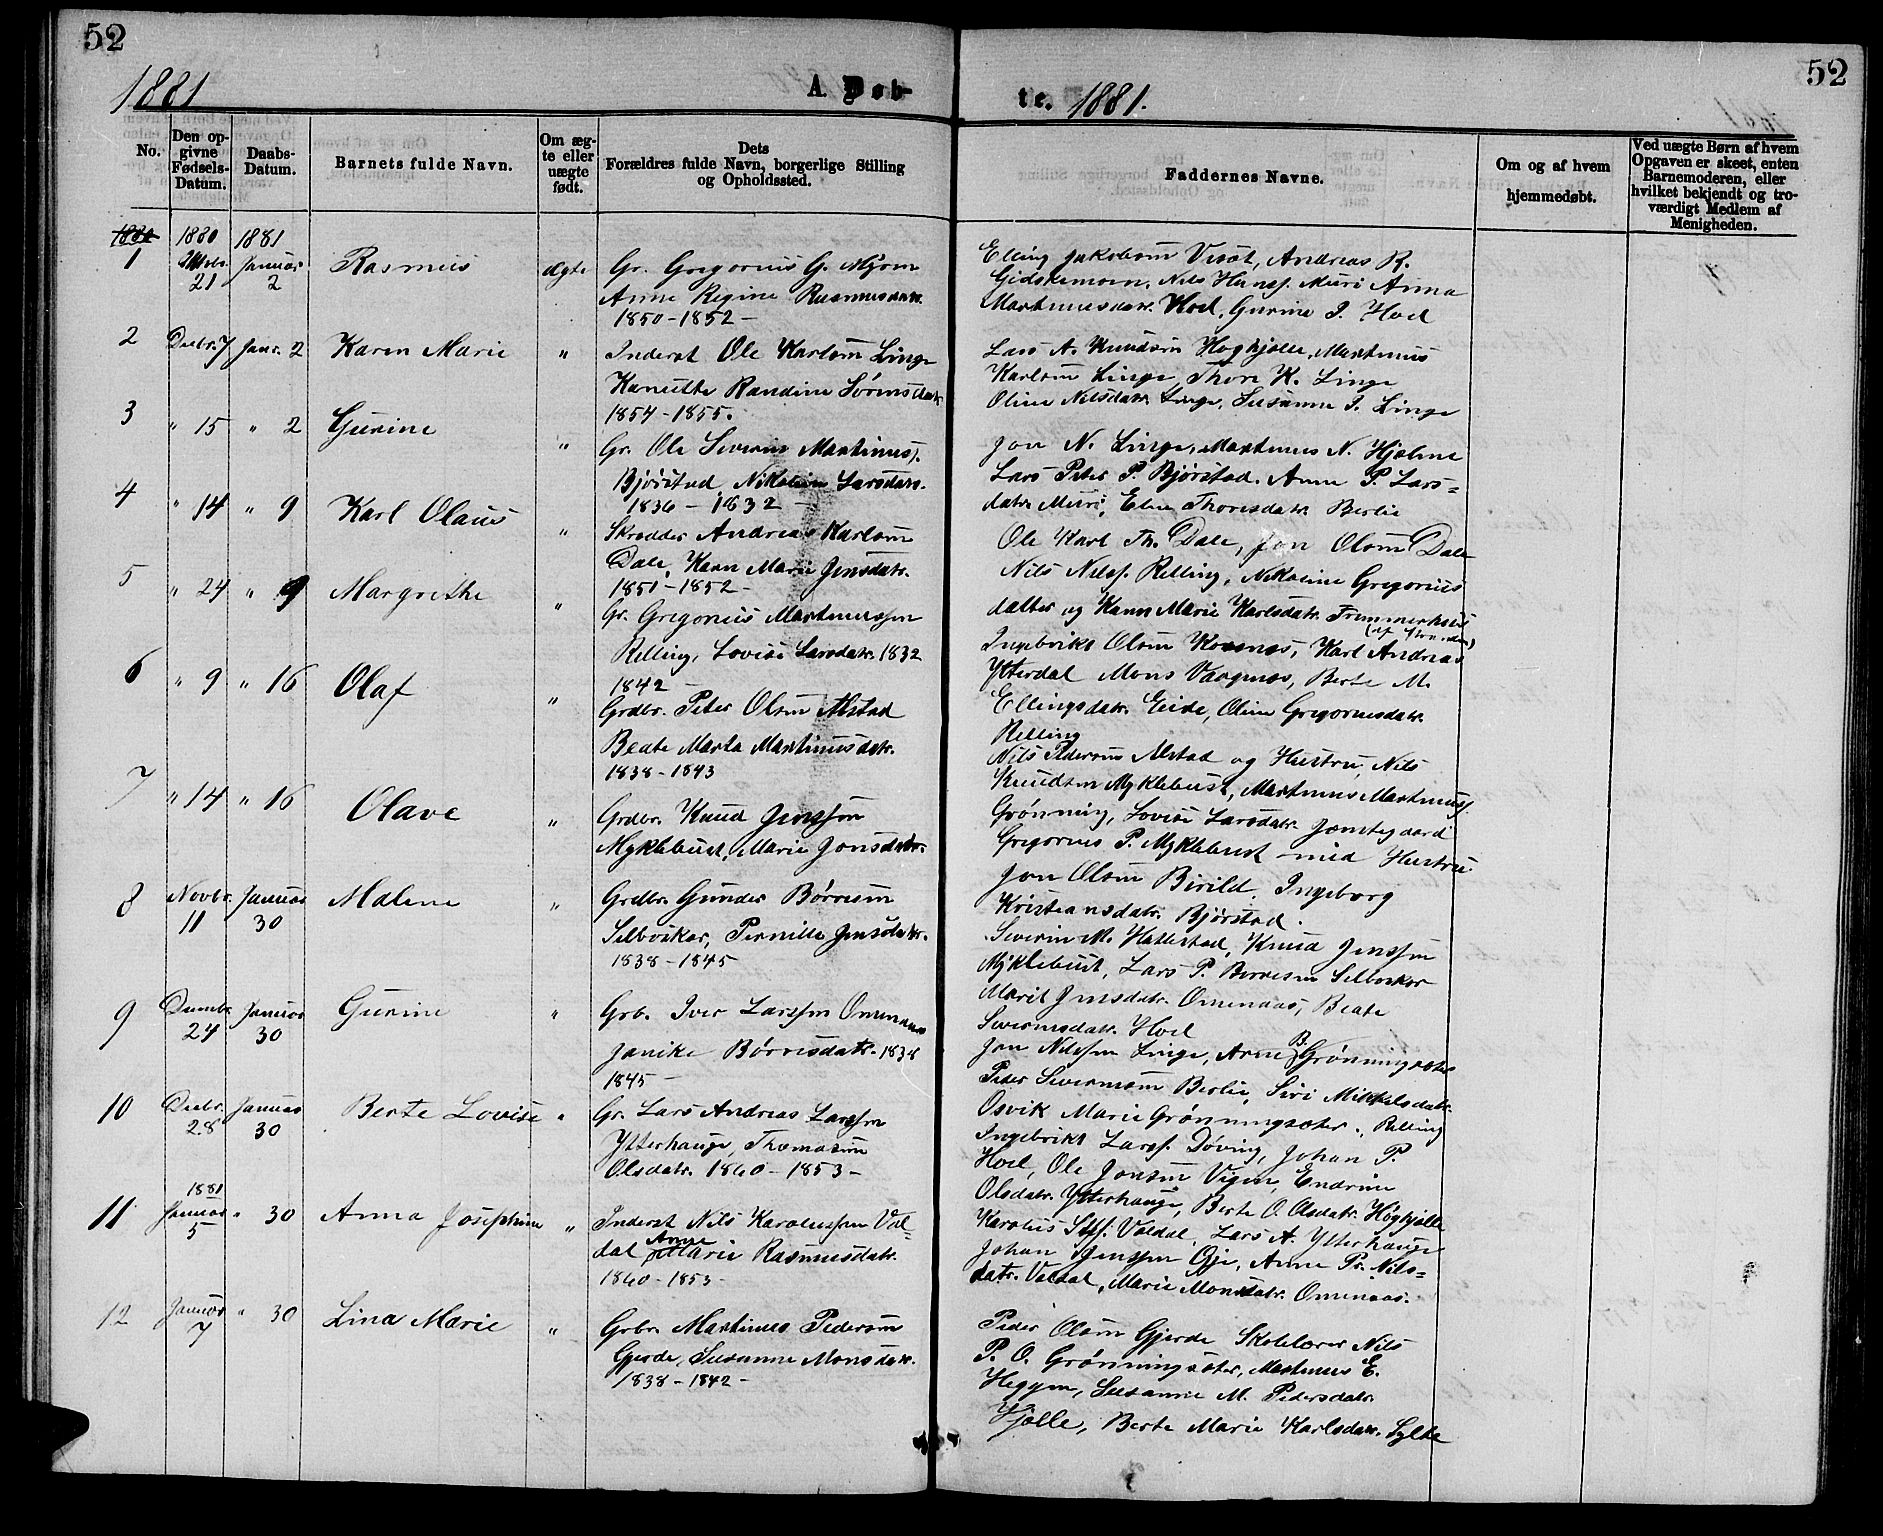 52
52
1881
A. Døb-
te. 1881.
No.
Den op-
givne
Fødsels-
Datum.
Daabs-
Datum.
Barnets fulde Navn.
Om æg-
te eller
uægte
født.
Dets
Forældres fulde Navn, borgerlige Stilling
og Opholdssted.
Faddernes Navne.
Om og af hvem
hjemmedøbt.
Ved uægte Børn af hvem
Opgaven er skeet, enten
Barnemoderen, eller
hvilket bekjendt og tro-
værdigt Medlem af
Menigheden.
1880 1880 1881
1 21 Januar 2 Rasmus ægte Gr. Gregorius G. Myren
Anne Regine Rasmusdatr.
1850 - 1852 -
Elling Jakobsen Andreas R.
Gidskemoen, Nils Hansf. Muri Anna
Martinusdatr. Hoel, Gurine I. Hoel
2 Decbr. 7 Janr. 2 Karen Marie " Inderst Ole Karlsen Linge
Randine Sørensdatr
1854 - 1855.
Lars A. Knudsen Høghjølle, Martinus
Karlsen Linge, Thore K. Linge
Oline Nilsdatr. Linge, Susanne I. Linge
3 " 15 " 2 Gurine " Gr. Ole Severin Martinusf.
Bjørstad Nikoline Larsdatr.
1836 - 1832 -
Jon N. Linge, Martinus N. Hjelme
Lars Peter P. Bjørstad. Anne P. Lars=
datr. Muri, Eline Thoresdatr. Berlie
4 " 14 " 9 Karl Olaus " Skrædder Andreas Karlsen
Dale, Karen Marie Jensdatr.
1851 - 1852 -
Ole Karl Th. Dale, Jon Olsen Dale
Nils Nilsf. Relling, Nikoline Gregorius
datter og Karen Marie Karlsdatr.
5 " 24 " 9 Margrethe " Gr. Gregorius Martinussen
Relling, Lovise Larsdatr. 1832
1842 -
Ingebrikt Olsen Korsnes, Karl Andreas
Ytterdal Mons Vaagnes, Berte M.
Ellingsdatr. Eide, Oline Gregoriusdatr.
Relling
6 " 9 " 16 Olaf " Grdbr. Peter Olsen Alstad
Beate Marta Martinusdatr.
1838 - 1843
Nils Pedersen Alstad og Hustru, Nils
Knudsen Myklebust, Martinus Martinusf.
Grønning, Lovise Larsdatr. Jemtegaard
7 " 14 " 16 Olave " Grdbr. Knud Jenssen
Myklebust, Marie Jonsdatr.
Gregorius P. Myklebust med Hustru
Jon Olsen Birild, Ingeborg
Kristiansdatr. Bjørstad.
8 Novbr. 11 Januar 30 Malene " Grdbr. Gunder Børresen
Selboskar, Pernille Jensdatr.
1838 - 1845
Severin M. Hallestad, Knud Jenssen
Myklebust, Lars P. Børresen Selboskar
Marit Jensdatr. Omenaas, Beate
Severinsdatr. Hoel
9 24 Januar 30 Gurine " Grb. Iver Larssen Omenaas
Janike Børresdatr. 1838
1845 -
Jon Nilssen Linge, Arne B. Grønningsæter
Peder Severinsen Berlie, Siri Mikkelsdatr.
Osvik Marie Grønningsæter, Relling
10 Decbr. 28 Januar 30 Berte Lovise " Gr. Lars Andreas Larssen
Ytterhauge, Thomasine
Olsdatr. 1860 - 1853 -
Ingebrikt Larsf. Døving, Johan P.
Hoel, Ole Jonsen Vigen, Endrine
Olsdatr. Ytterhauge, Berte O. Olsdatr. Høghjølle
11 1881 Januar 5 " 30 Anna Josephine " Inderst Nils Karolussen Val=
dal Anne Marie Rasmusdatr.
1860 - 1853 -
Karolus Valdal, Lars A. Ytterhauge
Johan Jenssen Øje, Anne Pr. Nils=
datr. Valdal, Marie Monsdatr. Omenaas.
12 Januar 7 " 30 Lina Marie " Grbr. Martinus Pedersen
Gjerde, Susanne Monsdatr.
1838 - 1842 -
Peder Olsen Gjerde Skolelærer Nils
P. O. Grønningsæter, Martinus E.
Heggen, Susanne M. Pedersdatr.
Hjelle, Berte Marie Karlsdatr. Sylte